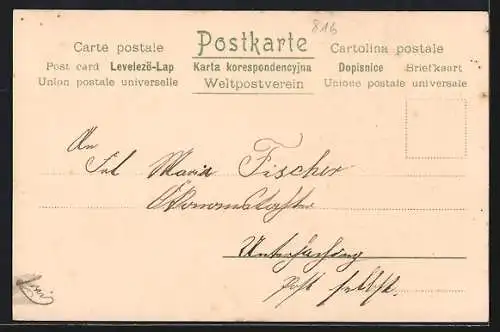 816
Carte postale Postkarte Cartolina postale
Post card Levelező-Lap Karta korespondencyjna Dopisnice Briefkaart
Union postale universelle Weltpostverein Unione postale universale
An
Frl Maria Fischer
Ökonomstochter
Unterfarching
Post selbst.